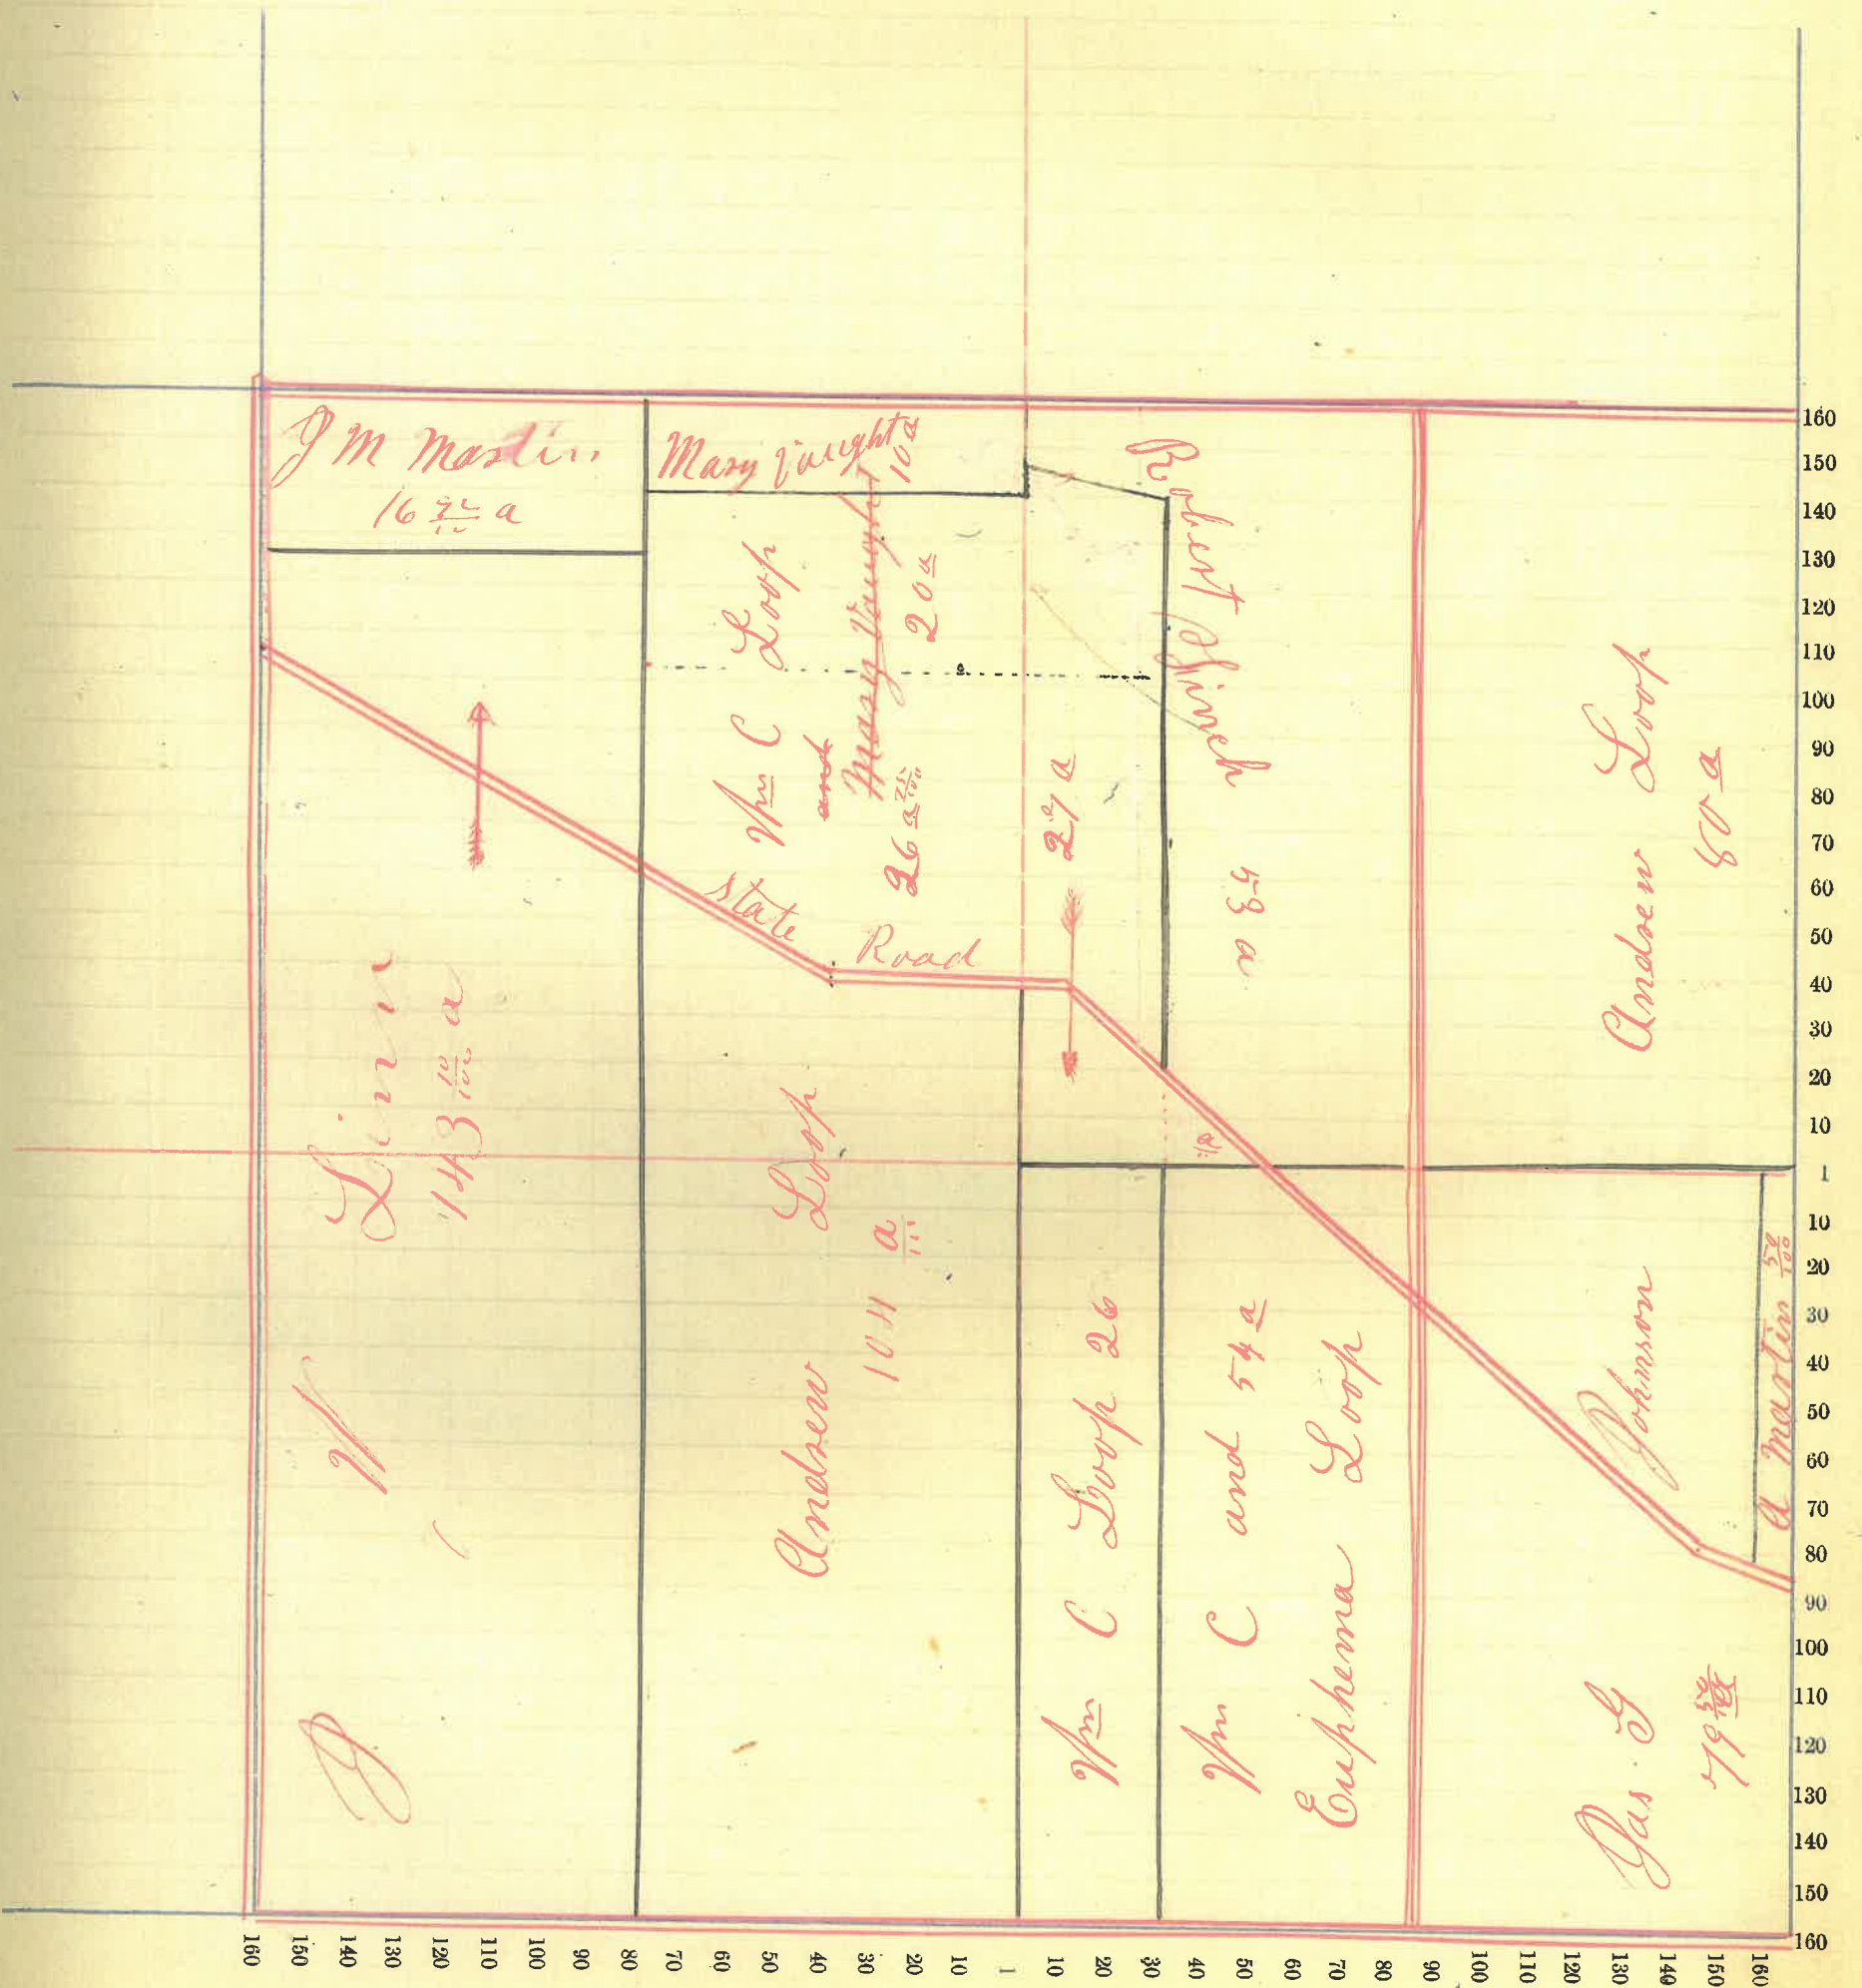 J M Martin
16 a
Mary Vaught
10 a
Wm C Loop
and
Mary Vaught
20 a
26 a 25/100
27 a
53 a
Andrew Loop
80 a
State Road
J W Linn
143 10/100 a
Andrew Loop
104 a
Wm C Loop 26
Wm C and 54 a
Euphema Loop
Jas G Johnson
79 50/100
A Martin 50/100
160
150
140
130
120
110
100
90
80
70
60
50
40
30
20
10
1
10
20
30
40
50
60
70
80
90
100
110
120
130
140
150
160
160 150 140 130 120 110 100 90 80 70 60 50 40 30 20 10 1 10 20 30 40 50 60 70 80 90 100 110 120 130 140 150 160